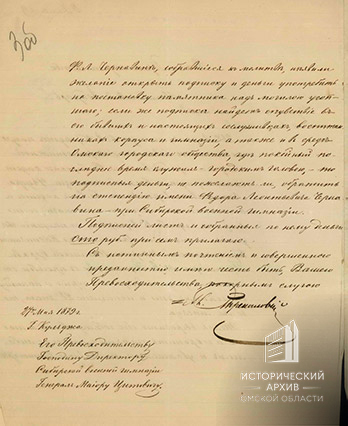 306
Ѳ. Л. Чернавинъ, собравшiеся къ молитвѣ, изъявили
желанiе открыть подписку и деньги употребить
на постановку памятника надъ могилою усоп-
шаго; если же подписка найдетъ сочувствiе въ
его бывшихъ и настоящихъ сослуживцахъ, воспитан-
никахъ корпуса и гимназiи, а также и въ средѣ
Омскаго городскаго общества, гдѣ покойный по-
слѣднее время служилъ городскимъ головою, то
подписныя деньги, не пожелаютъ ли, обратить
на стипендiю имени Ѳедора Леонтьевича Черна-
вина при Сибирской военной гимназiи.
Подписной листъ и собранныя по нему деньги
сто руб при семъ прилагаю.
Съ истиннымъ почтенiемъ и совершенною
преданностiю имѣю честь быть, Вашего
Превосходительства, покорнымъ слугою
27 Мая 1879 г.
г. Кульджа
Его Превосходительству
Господину Директору
Сибирской военной гимназiи
Генералъ Маiору
ИСТОРИЧЕСКИЙ
АРХИВ
ОМСКОЙ ОБЛАСТИ